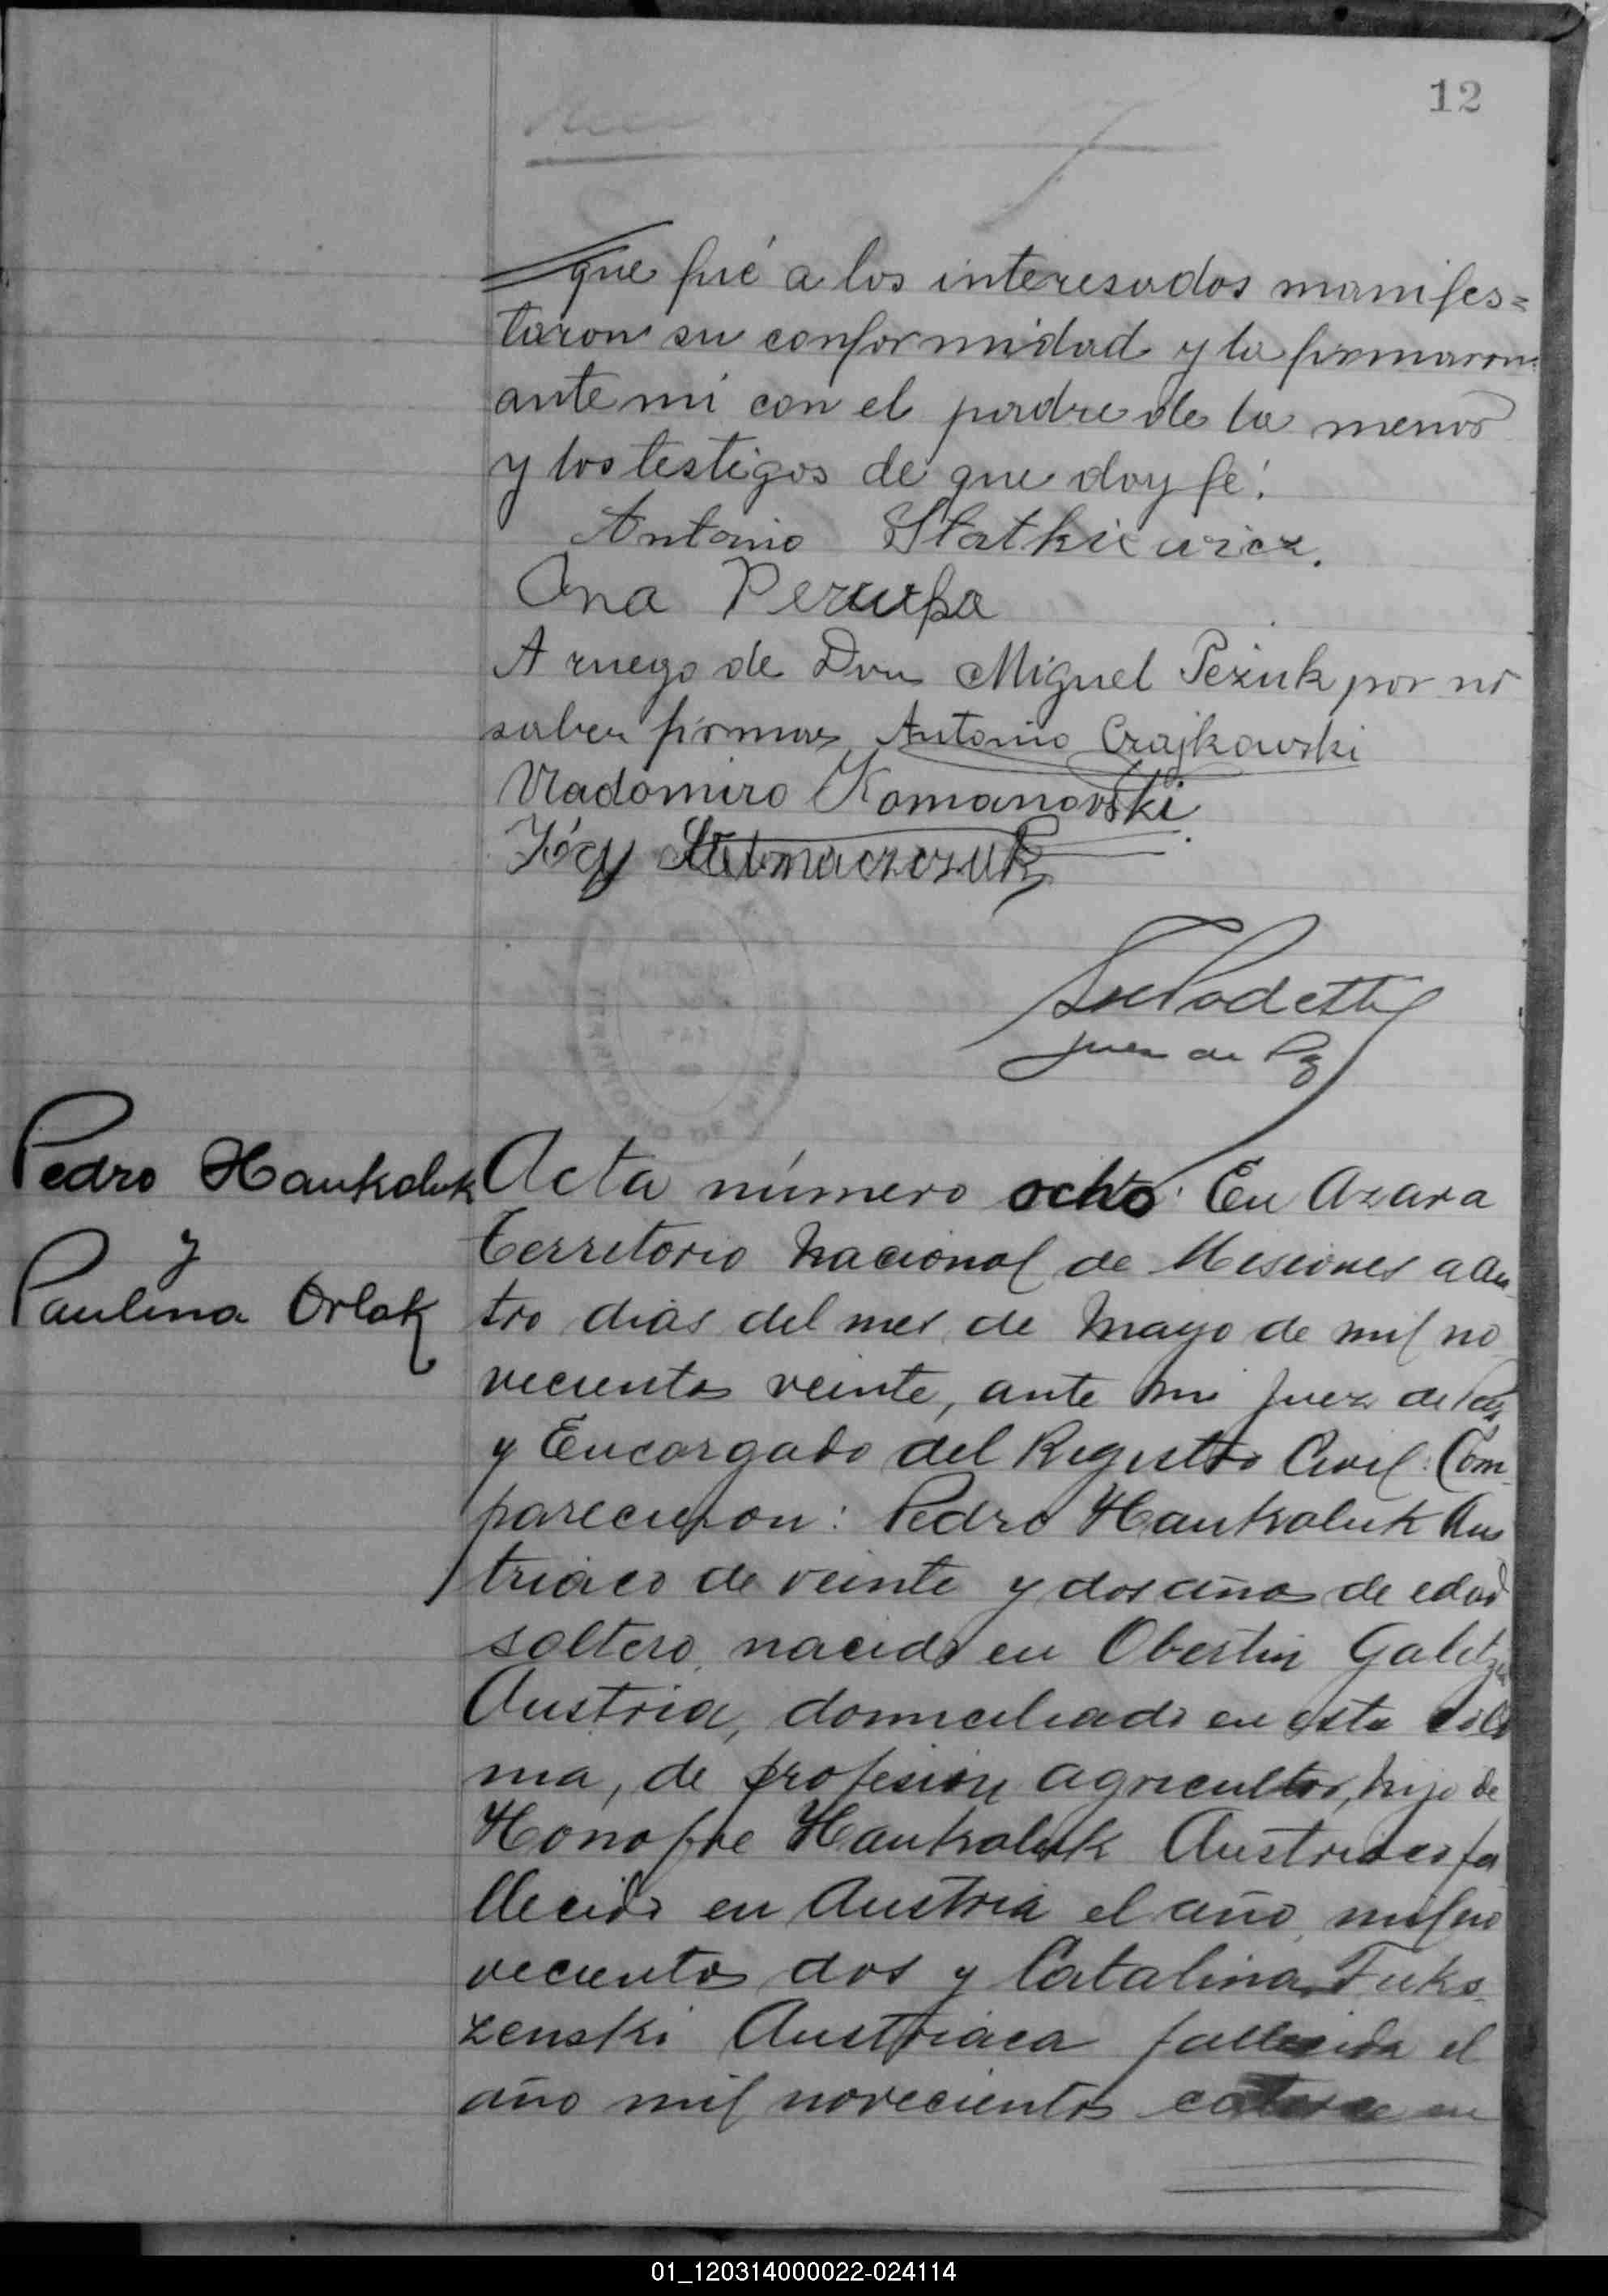 12
que fué a los interesados manifes=
taron su conformidad y la firmaron
ante mi con el padre de la menor
y los testigos de que doy fé.
Antonio Statkiewicz.
Ana
A ruego de Don Miguel Pezuk por no
saber firmar Antonio Czajkowski
Vladomiro Romanowski
Stelmaszczuk
Podetti
Juez de Paz
Pedro Haukaluk
y
Paulina Orlak
Acta número ocho. En Azara
Territorio Nacional de Misiones a cua
tro dias del mes de Mayo de mil no
vecientos veinte, ante mi Juez de Paz
y Encargado del Registro Civil: Com
parecieron: Pedro Haukaluk Aus
triaco de veinte y dos años de edad
soltero, nacido en Obertin Galitzia
Austria, domiciliado en esta Colo
nia, de profesion agricultor, hijo de
Honofre Haukaluk Austriaco fa
llecido en Austria el año mil no
vecientos dos y Catalina Fuks
zenski Austriaca fallecida el
año mil novecientos catorce en
01_120314000022-024114